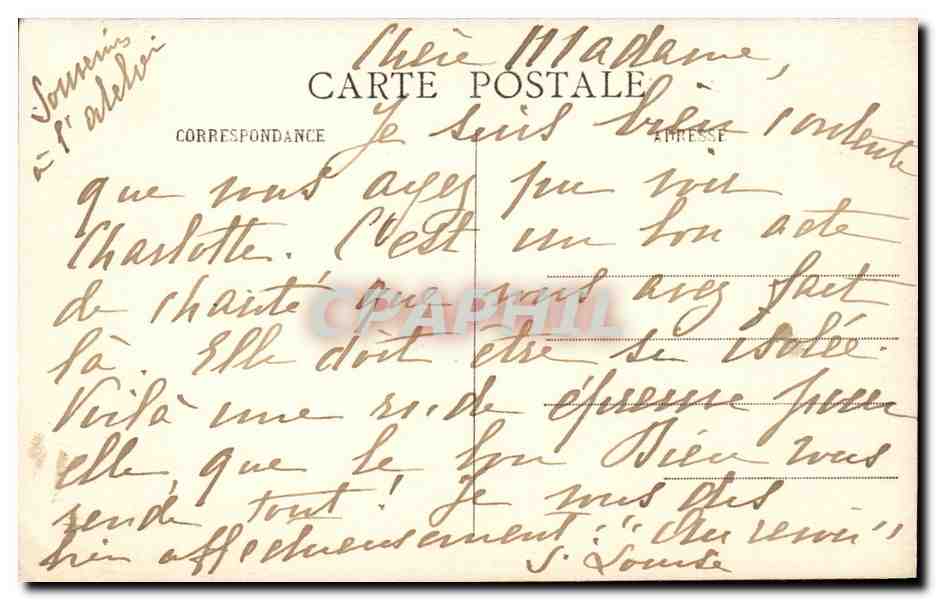 Souvenirs
à l'atelier
Chère Madame,
CARTE POSTALE
CORRESPONDANCE
ADRESSE
Je suis bien contente
que vous ayez pu voir
Charlotte. C'est un bon acte
de charité que vous avez fait
là. Elle doit être si isolée.
Voilà une rude épreuve pour
elle, que le bon Dieu vous
rende tout! Je vous dis
bien affectueusement: "Au revoir"
S. Louise
CPAPHIL